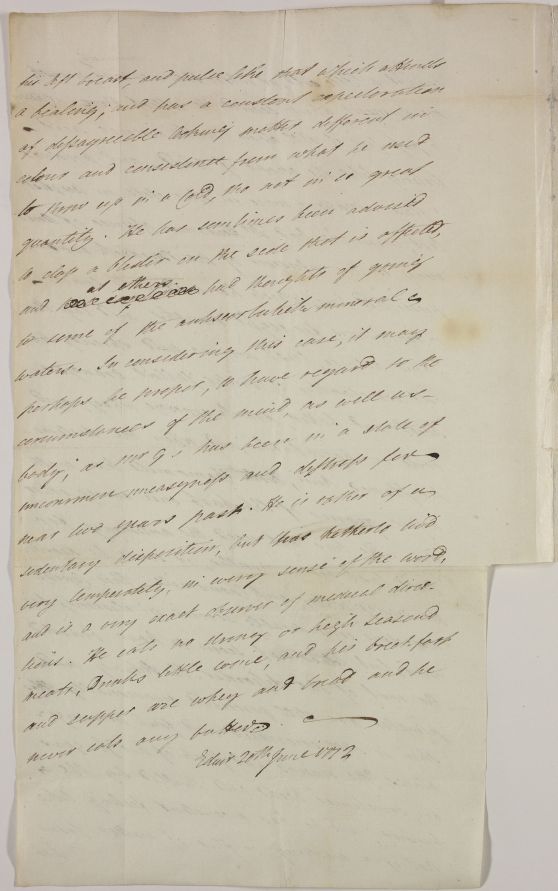 his left breast, and pulse like that which attends
a bealing; and has a constant expectoration
of disagreeable looking matter different in
colour and consistence from what he used
to throw up in a Cold, tho not in so great
quantity. He has somtimes been advised
to clap a blister on the side that is affected,
and at others had thoughts of going
to some of the mineral
waters. In considering this case, it may
perhaps be proper, to have regard to the
circumstances of the mind, as well as
body; as Mr G.s has been in a state of
uncommon uneasyness and distress for
near two years past. He is rather of a
sedentary disposition, but has hetherto livd
very temperately, in every sense of the word,
and is a very exact observer of medical direc-
tions. He eats no strong or high seasond
meats, Drinks little wine, and his breakfast
and supper are whey and bread and he
never eats any butter.
Edinr 20th June 1772